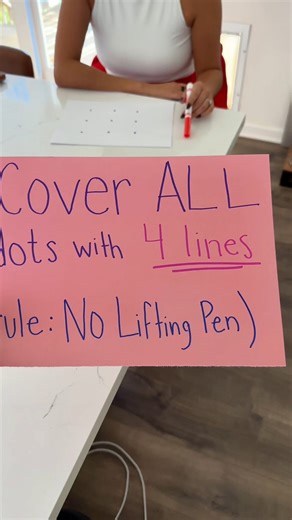 Cover ALL
dots with 4 lines
rule: No Lifting Pen)